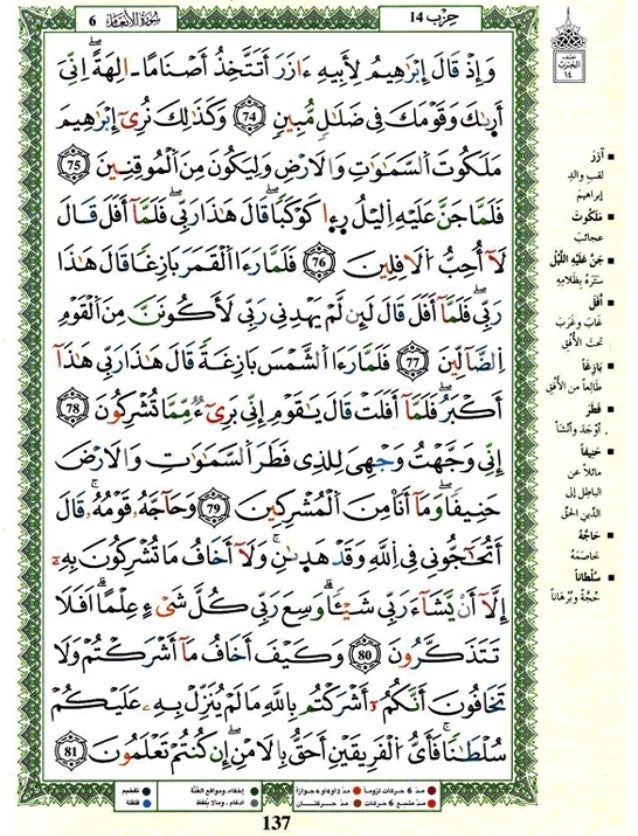 حِزْب 14
سُورَةُ الأَنْعَام 6
نصف الحزب ١٤
وَإِذْ قَالَ إِبْرَٰهِيمُ لِأَبِيهِ ءَازَرَ أَتَتَّخِذُ أَصْنَامًا ـالِهَةً اِنِّيَ
أَر۪ىٰكَ وَقَوْمَكَ فِي ضَلَٰلٍ مُّبِينٍ 74 وَكَذَٰلِكَ نُرِىٓ إِبْرَٰهِيمَ
مَلَكُوتَ اَ۬لسَّمَٰوَٰتِ وَالَارْضِ وَلِيَكُونَ مِنَ اَ۬لْمُوقِنِينَ 75
فَلَمَّا جَنَّ عَلَيْهِ اِ۬ليْلُ رِءٛا كَوْكَبًا قَالَ هَٰذَا رَبِّي فَلَمَّآ أَفَلَ قَالَ
لَآ أُحِبُّ اُ۬لَافِلِينَ 76 فَلَمَّا رَءَا اَ۬لْقَمَرَ بَازِغًا قَالَ هَٰذَا
رَبِّي فَلَمَّآ أَفَلَ قَالَ لَئِن لَّمْ يَهْدِنِي رَبِّي لَأَكُونَنَّ مِنَ اَ۬لْقَوْمِ
اِ۬لضَّآلِّينَ 77 فَلَمَّا رَءَا اَ۬لشَّمْسَ بَازِغَةً قَالَ هَٰذَا رَبِّي هَٰذَآ
أَكْبَرُ فَلَمَّآ أَفَلَتْ قَالَ يَٰقَوْمِ إِنِّي بَرِيٓءٌ مِّمَّا تُشْرِكُونَ 78
إِنِّي وَجَّهْتُ وَجْهِيَ لِلذِي فَطَرَ اَ۬لسَّمَٰوَٰتِ وَالَارْضَ
حَنِيفًا وَمَآ أَنَا مِنَ اَ۬لْمُشْرِكِينَ 79 وَحَآجَّهُۥ قَوْمُهُۥ قَالَ
أَتُحَٰٓجُّونِي فِي اِ۬للَّهِ وَقَدْ هَدَىٰنِ وَلَآ أَخَافُ مَا تُشْرِكُونَ بِهِۦٓ
إِلَّآ أَنْ يَّشَآءَ رَبِّي شَيْـًٔا وَسِعَ رَبِّي كُلَّ شَيْءٍ عِلْمًا اَفَلَا
تَتَذَكَّرُونَ 80 وَكَيْفَ أَخَافُ مَآ أَشْرَكْتُمْ وَلَا
تَخَافُونَ أَنَّكُمُۥٓ أَشْرَكْتُم بِاللَّهِ مَا لَمْ يُنَزِّلْ بِهِۦ عَلَيْكُمْ
سُلْطَٰنًا فَأَيُّ اُ۬لْفَرِيقَيْنِ أَحَقُّ بِالَامْنِ إِن كُنتُمْ تَعْلَمُونَ 81
■ آزَرَ
لقب والدِ
إبراهيمَ
■ مَلَكُوتَ
عجائبَ
■ جَنَّ عَلَيْهِ اللَّيْلُ
سَتَرَهُ بِظَلامِهِ
■ أَفَلَ
غَابَ وغَرَبَ
تحتَ الأُفُقِ
■ بَازِغاً
طالِعاً من الأُفُقِ
■ فَطَرَ
أَوْجَدَ وأَنْشَأَ
■ حَنِيفاً
مائلاً عن
الباطِلِ إلى
الدِّينِ الحَقِّ
■ حَاجَّهُ
خاصَمَهُ
■ سُلْطَاناً
حُجَّةً وبُرْهَاناً
مدّ 6 حركات لزوماً مدّ 2 او 4 او 6 جوازاً إخفاء، ومواقع الغُنَّة تفخيم
مدّ مشبع 6 حركات مدّ حركتان إدغام، وما لا يُلفَظ قلقلة
137